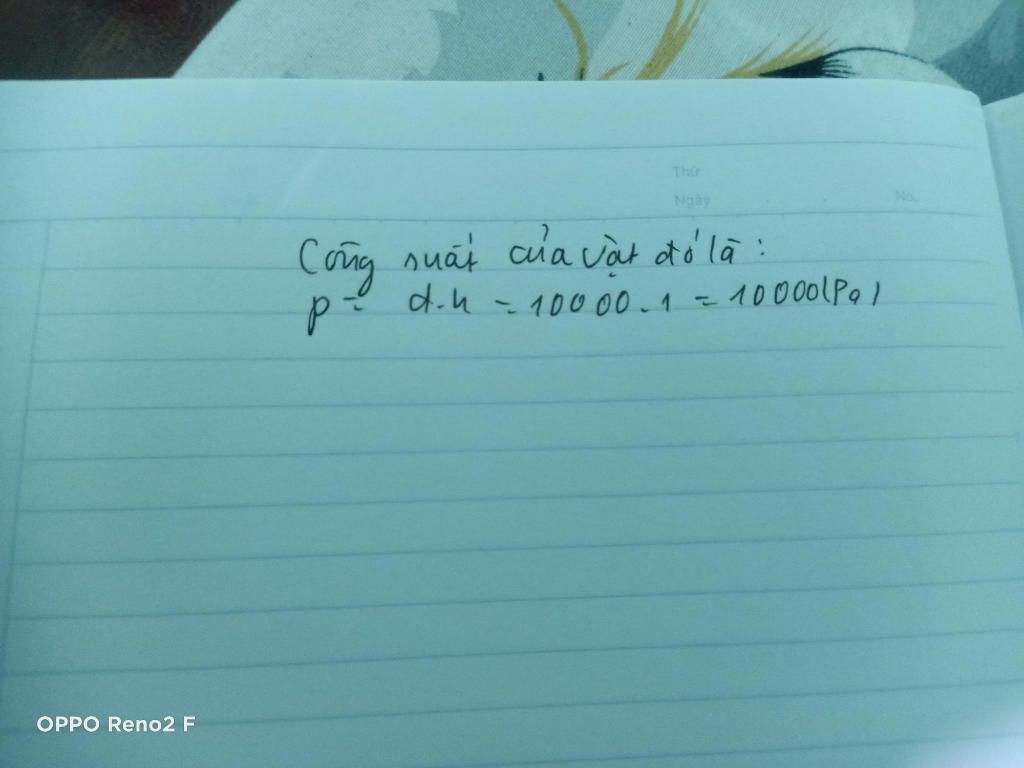 Thứ
Ngày
No.
Công suất của vật đó là :
p = d.h = 10000.1 = 10000(Pa)
OPPO Reno2 F